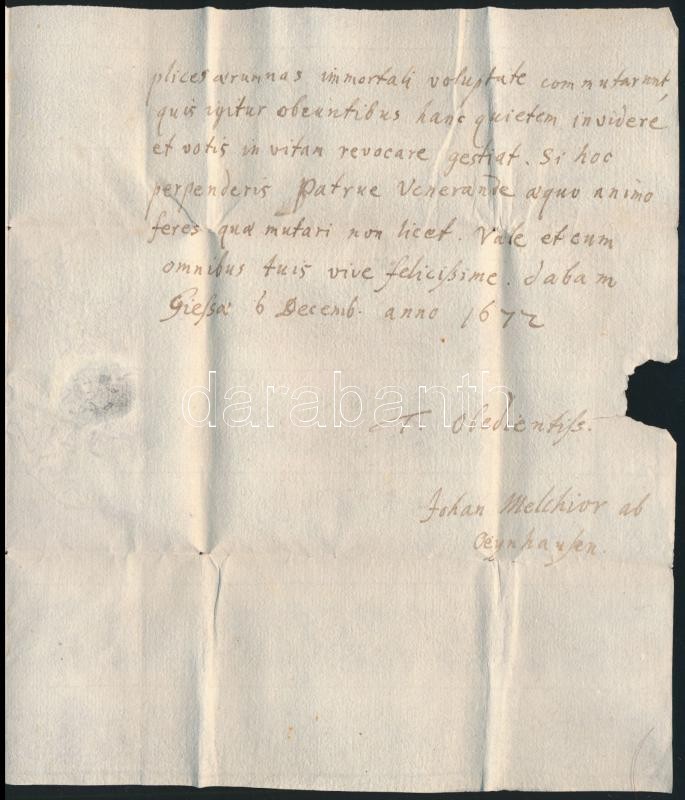 plices ærumnas immortali voluptate commutarunt,
quis igitur obeuntibus hanc quietem invidere
et votis in vitam revocare gestiat. Si hoc
perpenderis Patrue Venerande æquo animo
feres quæ mutari non licet. Vale et cum
omnibus tuis vive felicissime. dabam
Giessæ 6 Decemb. anno 1672
darabanth
T. Obedientiss.
Johan Melchior ab
Oeynhausen.